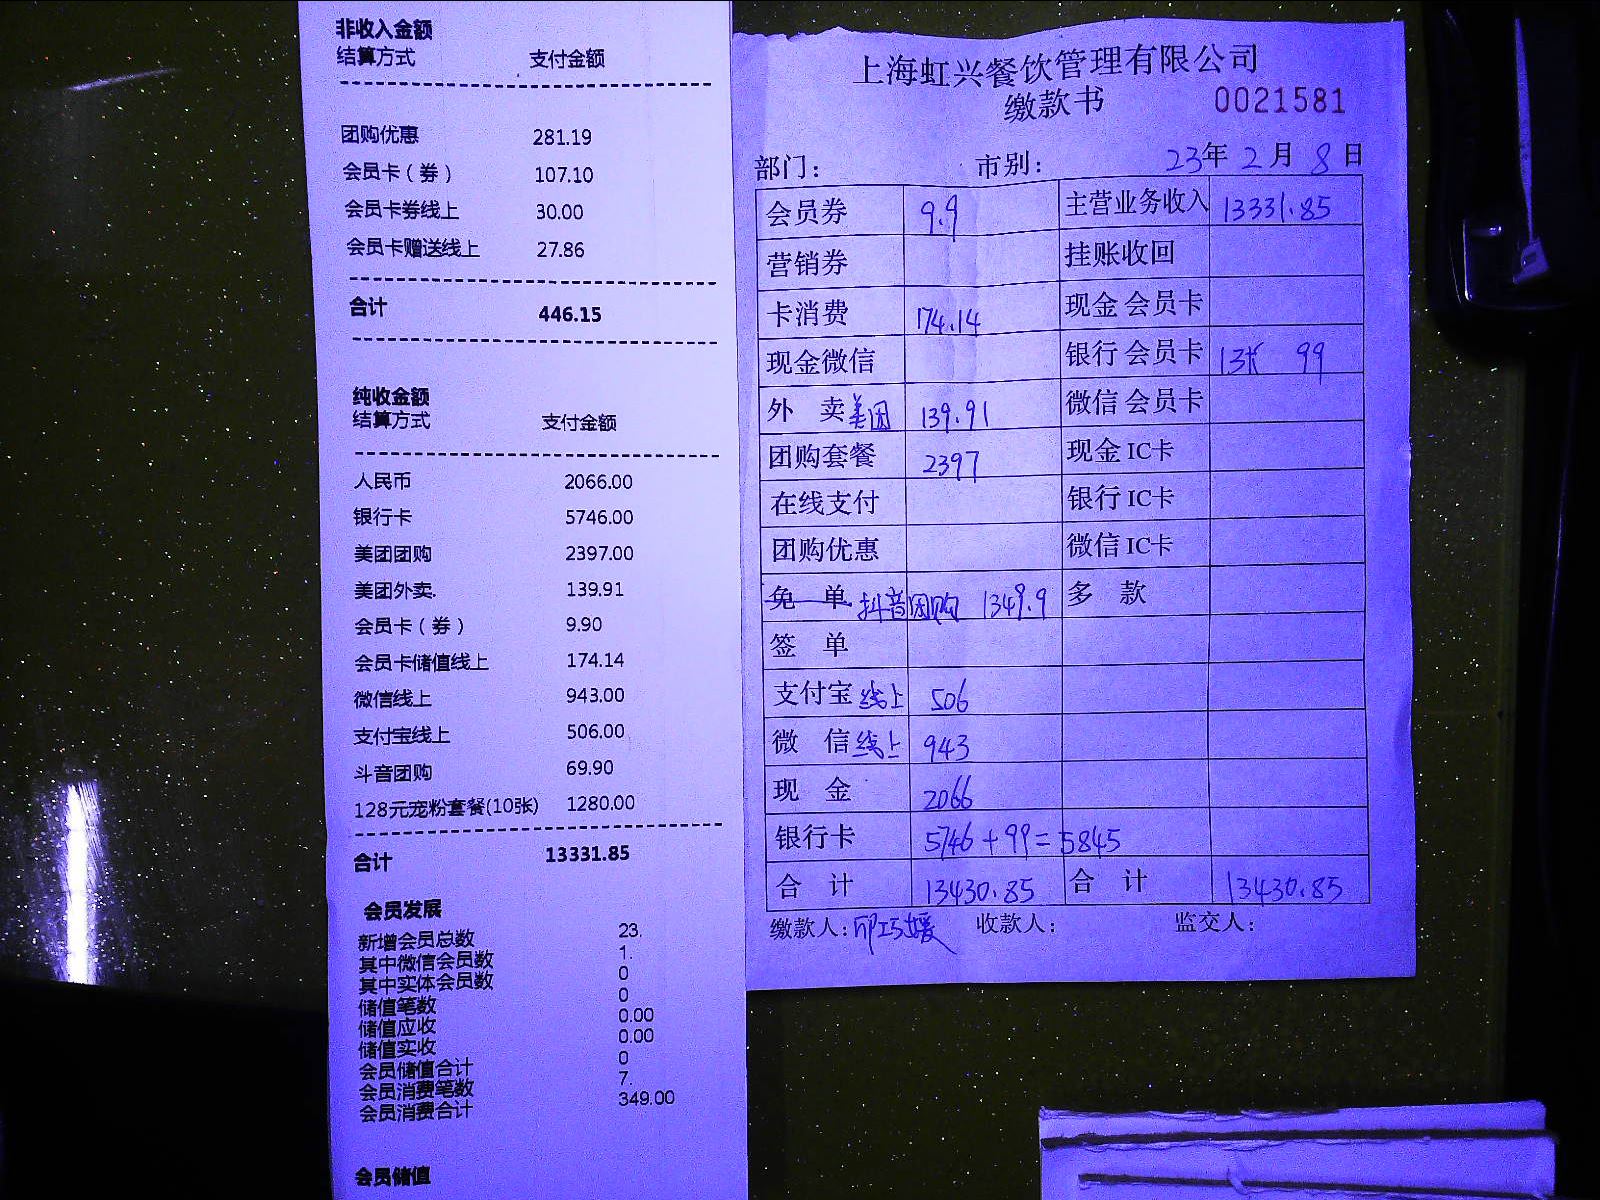 非收入金额
结算方式 支付金额
团购优惠 281.19
会员卡（券） 107.10
会员卡券线上 30.00
会员卡赠送线上 27.86
合计 446.15
纯收金额
结算方式 支付金额
人民币 2066.00
银行卡 5746.00
美团团购 2397.00
美团外卖. 139.91
会员卡（券） 9.90
会员卡储值线上 174.14
微信线上 943.00
支付宝线上 506.00
斗音团购 69.90
128元宠粉套餐(10张) 1280.00
合计 13331.85
会员发展
新增会员总数 23.
其中微信会员数 1.
其中实体会员数 0
储值笔数 0
储值应收 0.00
储值实收 0.00
会员储值合计 0
会员消费笔数 7.
会员消费合计 349.00
会员储值
上海虹兴餐饮管理有限公司
缴款书 0021581
部门： 市别： 23年2月8日
会员券 9.9 主营业务收入 13331.85
营销券 挂账收回
卡消费 174.14 现金会员卡
现金微信 银行会员卡 13张 99
外卖美团 139.91 微信会员卡
团购套餐 2397 现金IC卡
在线支付 银行IC卡
团购优惠 微信IC卡
免单 抖音团购 1349.9 多款
签单
支付宝线上 506
微信线上 943
现金 2066
银行卡 5746+99=5845
合计 13430.85 合计 13430.85
缴款人：邱巧媛 收款人： 监交人：